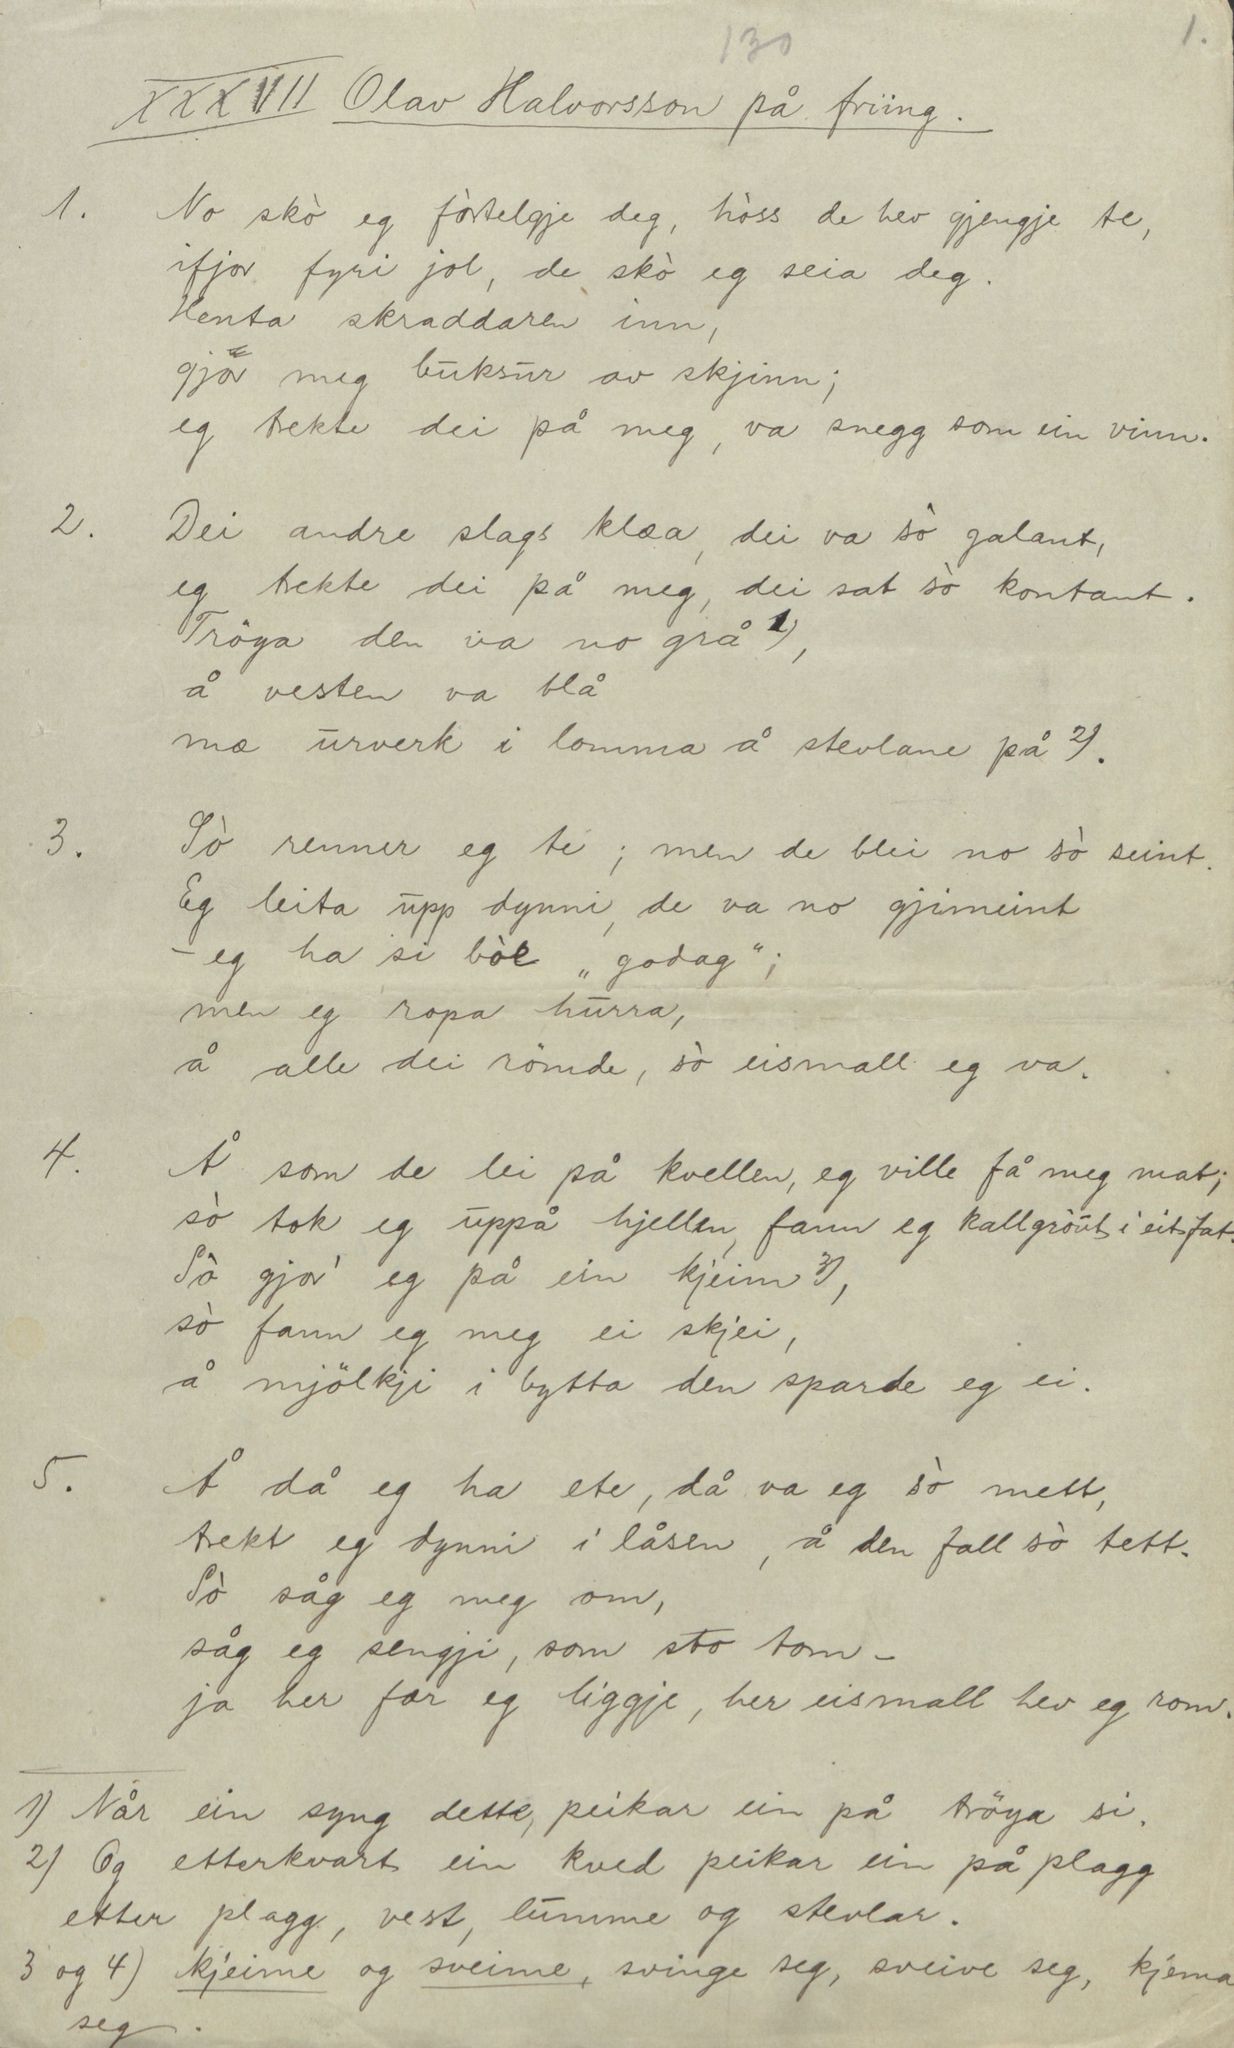 130
1.
XXXVII Olav Halvorsson på friing.
1. No skò eg fòrtelgje deg, hòss de hev gjengje te,
ifjor fyri jol, de skò eg seia deg.
Henta skraddaren inn,
gjör meg buksur av skjinn;
eg trekte dei på meg, va snegg som ein vinn.
2. Dei andre slags klæa, dei va sò galant,
eg trekte dei på meg, dei sat sò kontant.
Tröya den va no grå 1),
å vesten va blå
mæ urverk i lomma å stevlane på 2).
3. Sò renner eg te; men de blei no sò seint.
Eg leita upp dynni, de va no gjimeint
– eg ha si bòe „godag“;
men eg ropa hurra,
å alle dei römde, sò eismall eg va.
4. Å som de lei på kvellen, eg ville få meg mat;
sò tok eg uppå hjellen, fann eg kallgròut i eit fat.
Sò gjor' eg på ein kjeim 3),
sò fann eg meg ei skjei,
å mjölkji i bytta den sparde eg ei.
5. Å då eg ha ete, då va eg sò mett,
trekt eg dynni i låsen, å den fall sò tett.
Sò såg eg meg om,
såg eg sengji, som sto tom –
ja her fær eg liggje, her eismall hev eg rom.
1) Når ein syng dette, peikar ein på tröya si.
2) Og etterkvart ein kved peikar ein på plagg
etter plagg, vest, lumme og stevlar.
3 og 4) kjeime og sveime, svinge seg, sveive seg, kjema
seg.